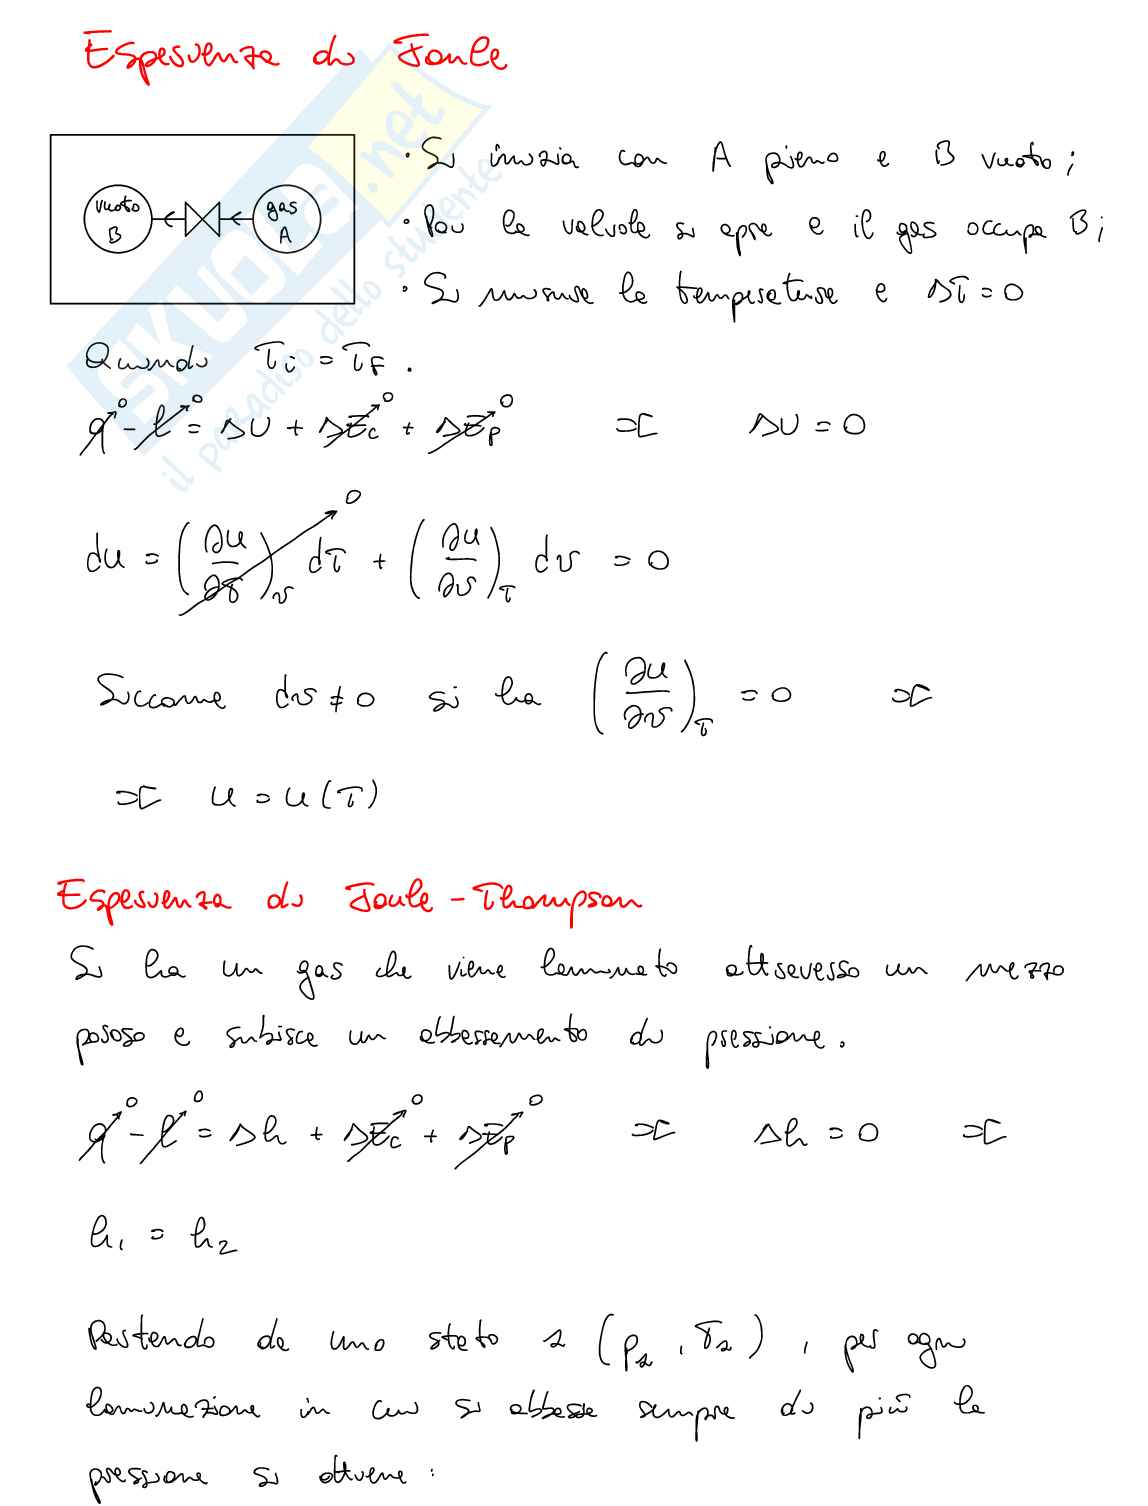 Esperienza di Joule
vuoto B
gas A
· Si inizia con A pieno e B vuoto;
· Poi la valvola si apre e il gas occupa B;
· Si misura la temperatura e ΔT = 0
Quando Ti = TF.
q→0 - l→0 = ΔU + ΔEc→0 + ΔEp→0 ⇒ ΔU = 0
du = (∂u/∂T)v→0 dT + (∂u/∂v)T dv = 0
Siccome dv ≠ 0 si ha (∂u/∂v)T = 0 ⇒
⇒ u = u(T)
Esperienza di Joule - Thompson
Si ha un gas che viene laminato attraverso un mezzo
poroso e subisce un abbassamento di pressione.
q→0 - l→0 = Δh + ΔEc→0 + ΔEp→0 ⇒ Δh = 0 ⇒
h1 = h2
Partendo da uno stato 1 (p1, T1), per ogni
laminazione in cui si abbassa sempre di più la
pressione si ottiene:
SKUOLA.net
il paradiso dello studente